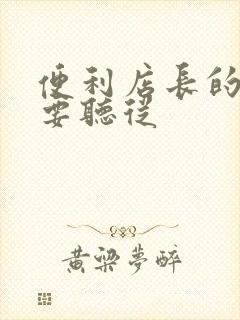 便利店長的
要聽從
黃梁夢醉